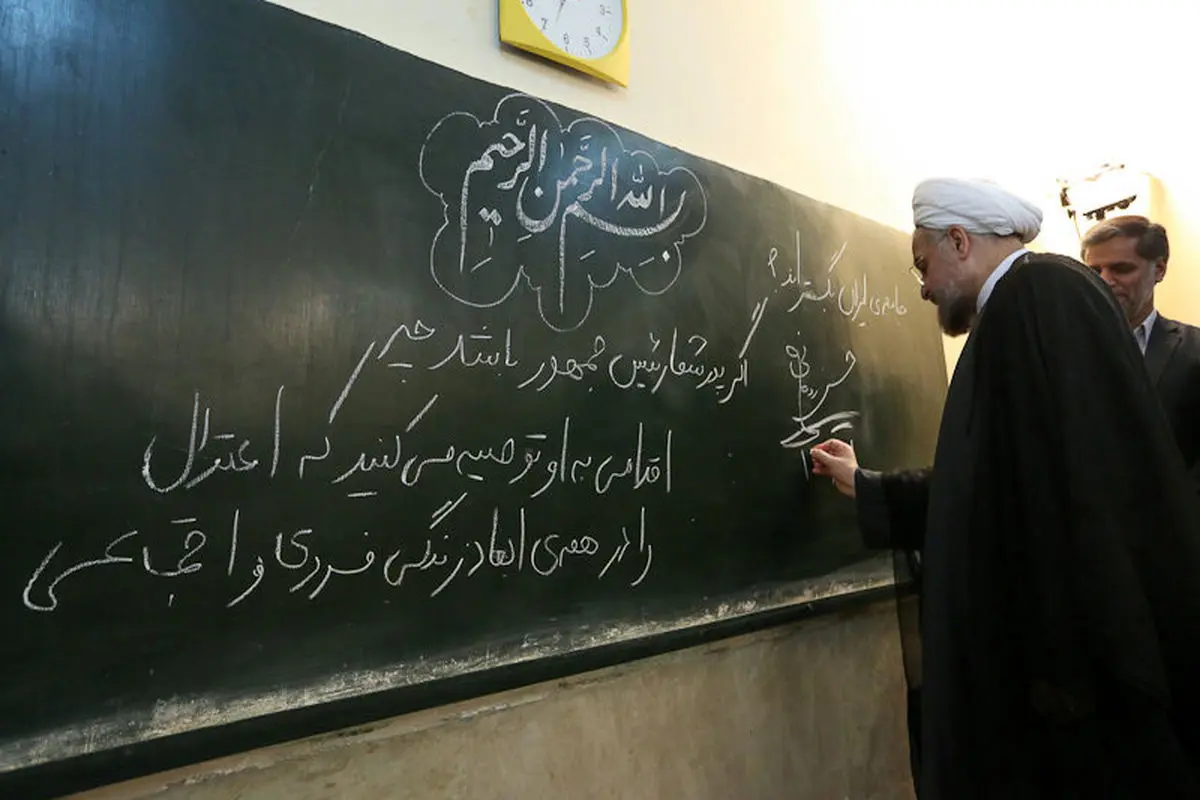 بسم الله الرحمن الرحیم
اگر پدر شما رئیس جمهور باشد چه
اقدامی به او توصیه می کنید که اعتدال
را در همه‌ی ابعاد زندگی فردی و اجتماعی
جامعه‌ی ایران بگستراند؟
حسن روحانی
7
6
5
4
3